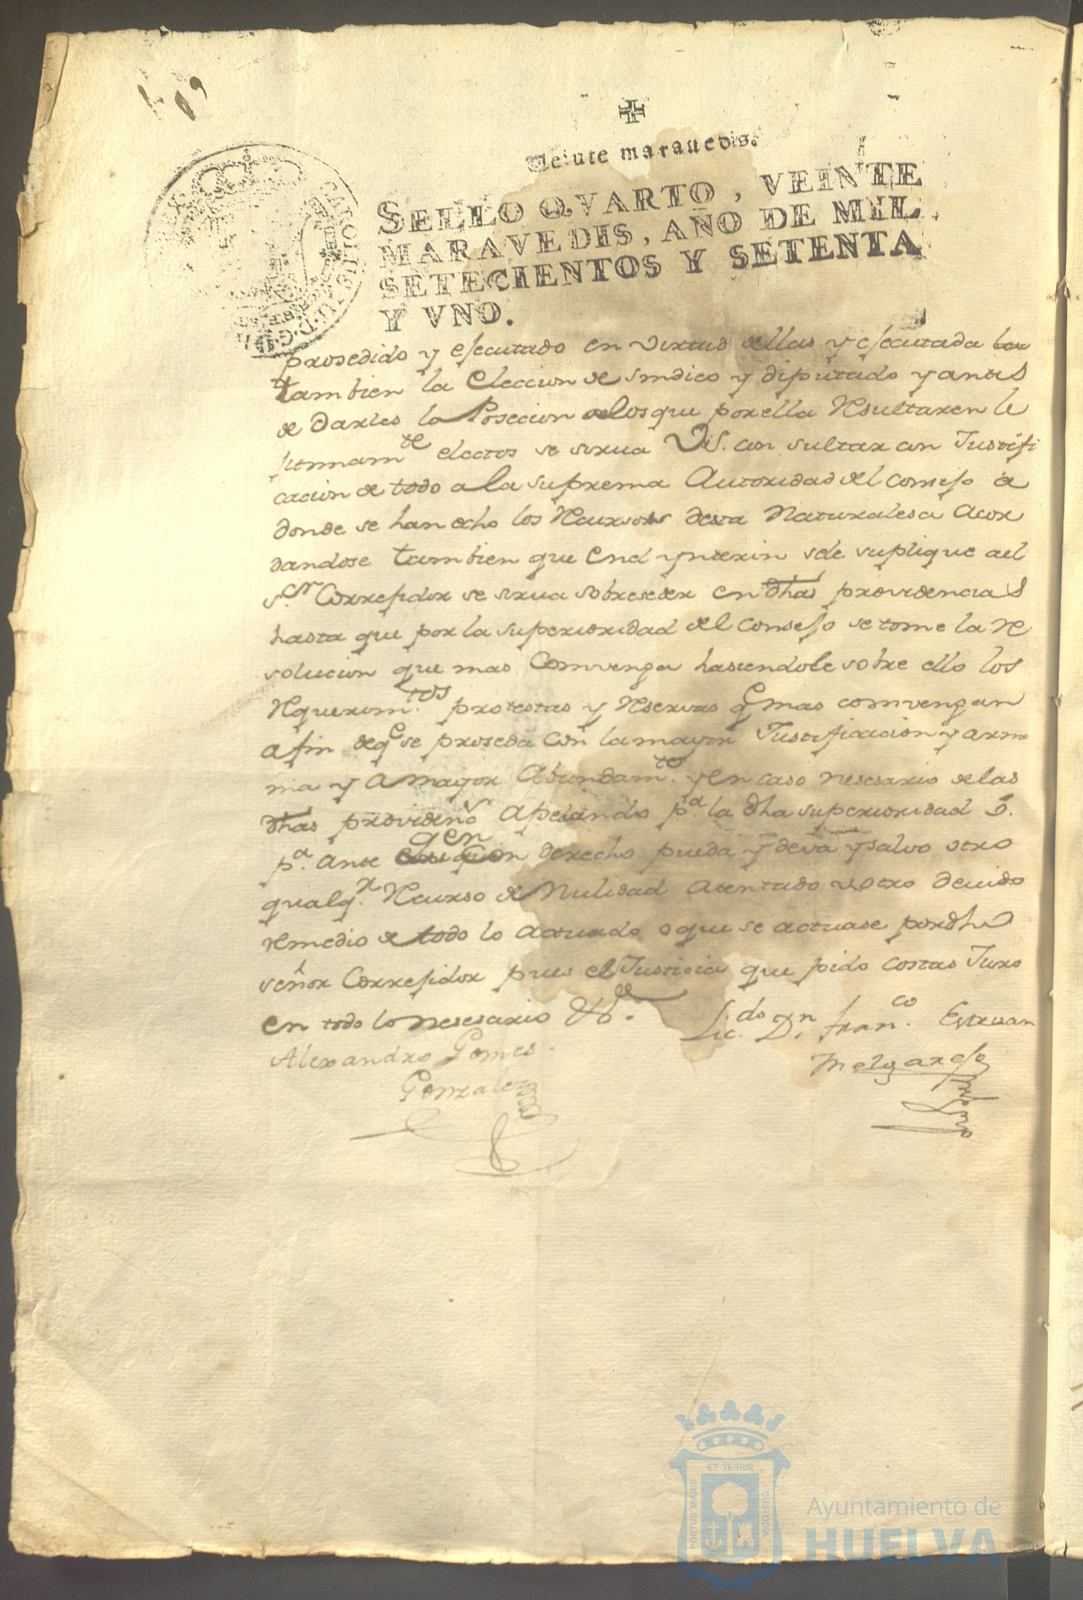 ✠
Veinte marauedis.
SELLO QVARTO, VEINTE
MARAVEDIS, AÑO DE MIL
SETECIENTOS Y SETENTA
Y VNO.
prosedido y ejecutado en virtud dellas y ejecutada
tambien la eleccion de sindico y diputado y antes
de darles la Posecion alosque por ella resultaren le
jitimamte electos se sirua VS. con sultar con Justifi
cacion de todo a la suprema Autoridad del consejo a
donde se han echo los Recursos desta Naturalesa Acor
dandose tambien que en el ynterin sele suplique a el
sor Correjidor se sirua sobreseder en dhas providencias
hasta que por la superioridad del consejo se tome la re
solucion que mas Convenga hasiendole sobre ello los
requerimtos protestas y reservas qe mas comvengan
a fin deqe se proseda con la mayor Justificacion y armo
nia y a mayor Abundamto y en caso nesesario de las
dhas providens apelando pa la dha superioridad ò
pa ante quien en derecho pueda y deva y salvo otro
qualqr Recurso de Nulidad Atentado u otro devido
remedio de todo lo actuado o que se actuase por dho
señor Correjidor pues es Justicia que pido costas Juro
en todo lo nesesario &a.
Licdo Dn Franco Estevan
Melgarejo
Alexandro Gomes.
Gonzalez
PORTUS MARIS
ET TERRAE
CUSTODIA
Ayuntamiento de
HUELVA